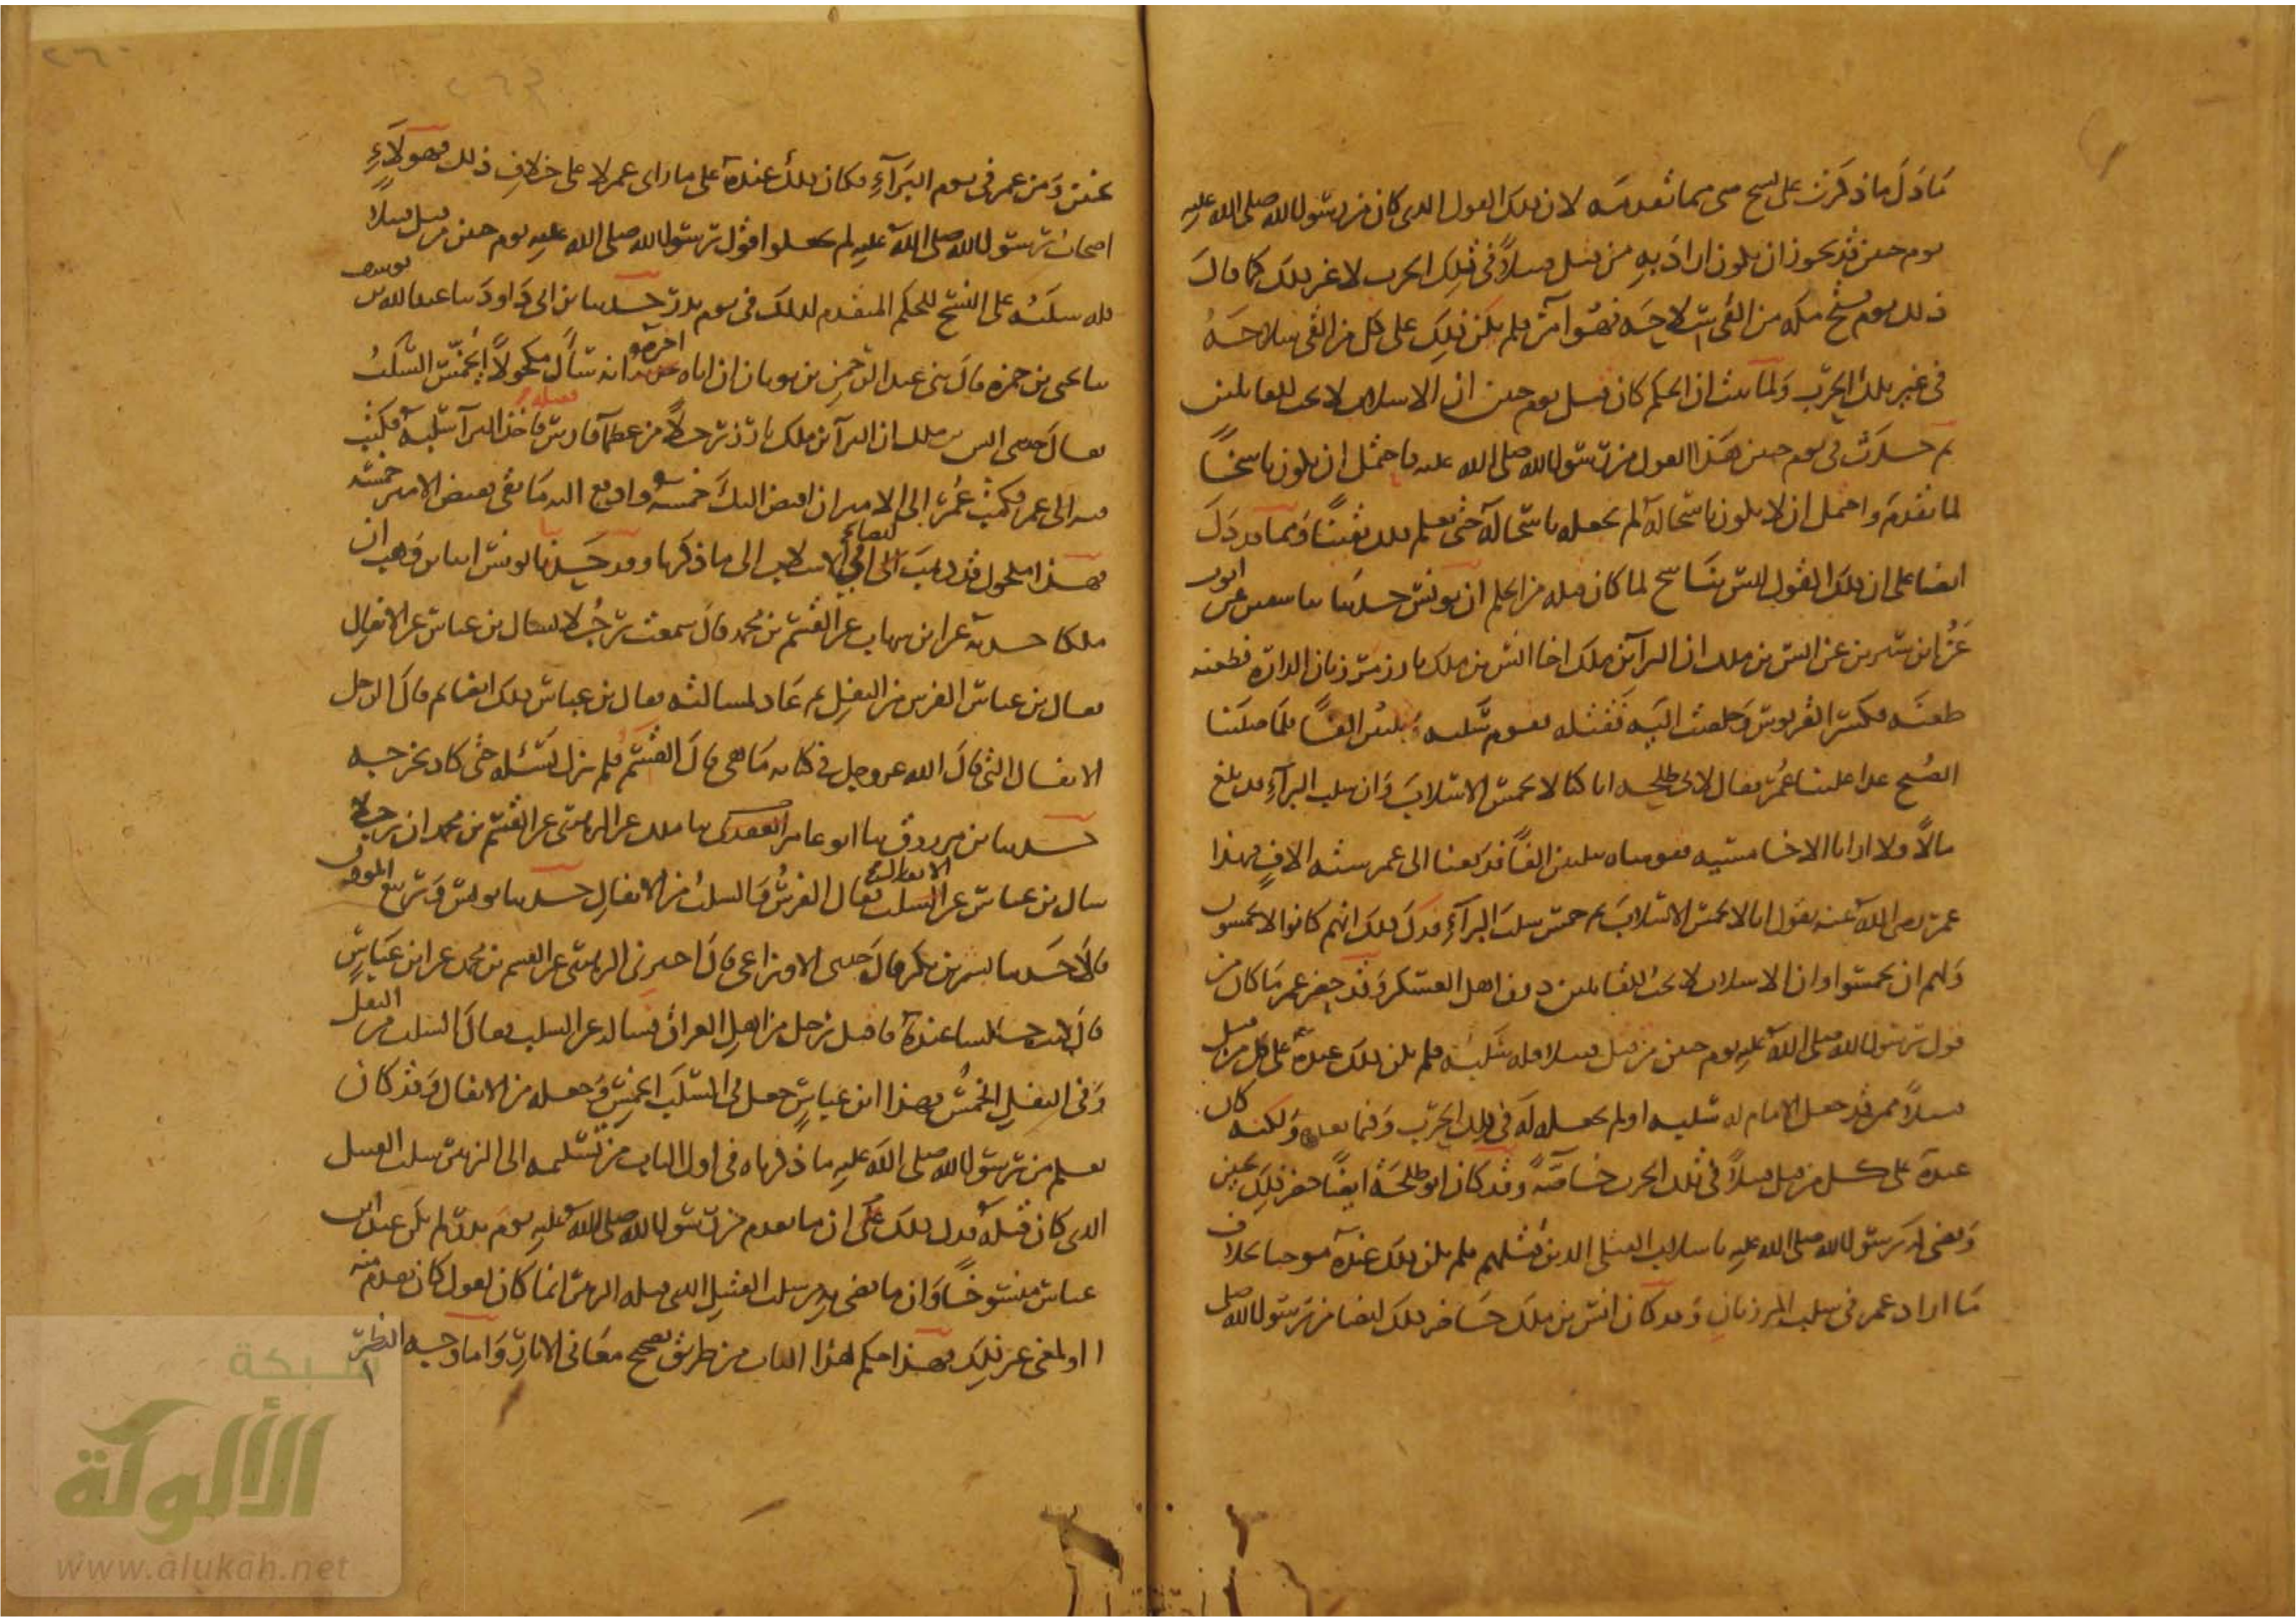 ما دل ما ذكرت على نسخ شى مما تقدمه لان ذلك القول الذى كان من رسول الله صلى الله عليه
يوم حنين قد يجوز ان يكون اراد به من قتل قتيلا فى تلك الحرب لا غير ذلك كما قال
ذلك يوم فتح مكه من القى سلاحه فهو آمن فلم يكن ذلك على كل من القى سلاحه
فى غير تلك الحرب ولما ثبت ان الحكم كان قبل يوم حنين ان الاسلاب لا تجب للقاتلين
ثم حدث فى يوم حنين هذا القول من رسول الله صلى الله عليه فاحتمل ان يكون ناسخا
لما تقدم واحتمل ان لا يكون ناسخا له لم نجعله ناسخا له حتى نعلم ذلك يقينا ومما قد دل
ايضا على ان ذلك القول ليس بناسخ لما كان قبله من الحكم ان يونس حدثنا سا سفين عن ايوب
عن ابن سيرين عن انس بن ملك ان البرآ بن ملك اخا انس بن ملك بارز مرزبان الزارة فطعنه
طعنه فكسر القربوس وخلصت اليه فقتله فقوم سلبه ثلثين الفا فلما صلينا
الصبح غدا علينا عمر فقال لابى طلحه انا كنا لا نخمس الاسلاب وان سلب البرآء قد بلغ
مالا ولا ارانا الا خامسيه فقومناه ثلثين الفا فدفعنا الى عمر ستة الاف فهذا
عمر رضى الله عنه يقول انا لا نخمس الاسلاب ثم خمس سلب البرآء فدل ذلك انهم كانوا لا يخمسون
ولهم ان يخمسوا وان الاسلاب لا تجب للقاتلين دون اهل العسكر وقد حضر عمر ما كان من
قول رسول الله صلى الله عليه يوم حنين من قتل قتيلا فله سلبه فلم يكن ذلك عنده على كل من قتل
قتيلا ممن قد جعل الامام له سلبه او لم يجعله له فى تلك الحرب وفيما بعد ولكنه كان
عنده على كل من قتل قتيلا فى تلك الحرب خاصة وقد كان ابو طلحة ايضا حضر ذلك بحنين
وقضى له رسول الله صلى الله عليه باسلاب القتلى الذين قتلهم فلم يكن ذلك عنده موجبا بخلاف
ما اراد عمر فى سلب المرزبان وقد كان انس بن ملك حاضر ذلك ايضا من رسول الله صلى
بحنين ومن عمر فى يوم البرآء فكان ذلك عنده على ما راى عمر لا على خلاف ذلك فهولاء
اصحاب رسول الله صلى الله عليه لم يجعلوا قول رسول الله صلى الله عليه يوم حنين من قتل قتيلا
فله سلبه على النسخ للحكم المتقدم لذلك فى يوم بدر حدثنا بن ابى داود سا عبد الله بن يوسف
سا يحيى بن حمزه قال ثنى عبد الرحمن بن ثوبان ان اباه اخبره انه سال مكحولا ايخمس السلب
فقال حدثنى انس بن ملك ان البرآ بن ملك بارز رجلا من عظما فارس فقتله فاخذ البرآ سلبه فكتب
فيه الى عمر فكتب عمر الى الامير ان اقبض اليك خمسه وادفع اليه ما بقى فقبض الامير خمسه
فهذا مكحول قد ذهب ايضا فى الاسلاب الى ما ذكرنا وقد حدثنا يونس انا بن وهب ان
ملكا حدثه عن ابن شهاب عن القسم بن محمد قال سمعت رجلا يسال بن عباس عن الانفال
فقال بن عباس الفرس من النفل ثم عاد لمسالته فقال بن عباس ذلك ايضا ثم قال الرجل
الانفال التى قال الله عز وجل فى كتابه ما هى قال القسم فلم يزل يسئله حتى كاد يخرجه
حدثنا بن مرزوق سا ابو عامر العقدى سا ملك عن الزهرى عن القسم بن محمد ان رجلا
سال بن عباس عن الانفال فقال الفرس والسلب من الانفال حدثنا يونس وربيع المؤذن
قالا حدثنا بشر بن بكر قال حدثنى الاوزاعى قال اخبرنى الزهرى عن القسم بن محمد عن ابن عباس
قال كنت جالسا عنده فاقبل رجل من اهل العراق فساله عن السلب فقال السلب من النفل
وفى النفل الخمس فهذا ابن عباس جعل فى السلب الخمس وجعله من الانفال وقد كان
يعلم من رسول الله صلى الله عليه ما ذكرناه فى اول الباب من تسليمه الى الزبير سلب القتيل
الذى كان قتله فدل ذلك على ان ما تقدم من رسول الله صلى الله عليه يوم بدر لم يكن عند ابن
عباس منسوخا وان ما قضى به من سلب القتيل الذى قتله الزبير انما كان لقول كان تقدم منه
او لمعنى غير ذلك فهذا حكم هذا الباب من طريق تصحيح معانى الاثار واما وجه النظر
شبكة
الألوكة
www.alukah.net